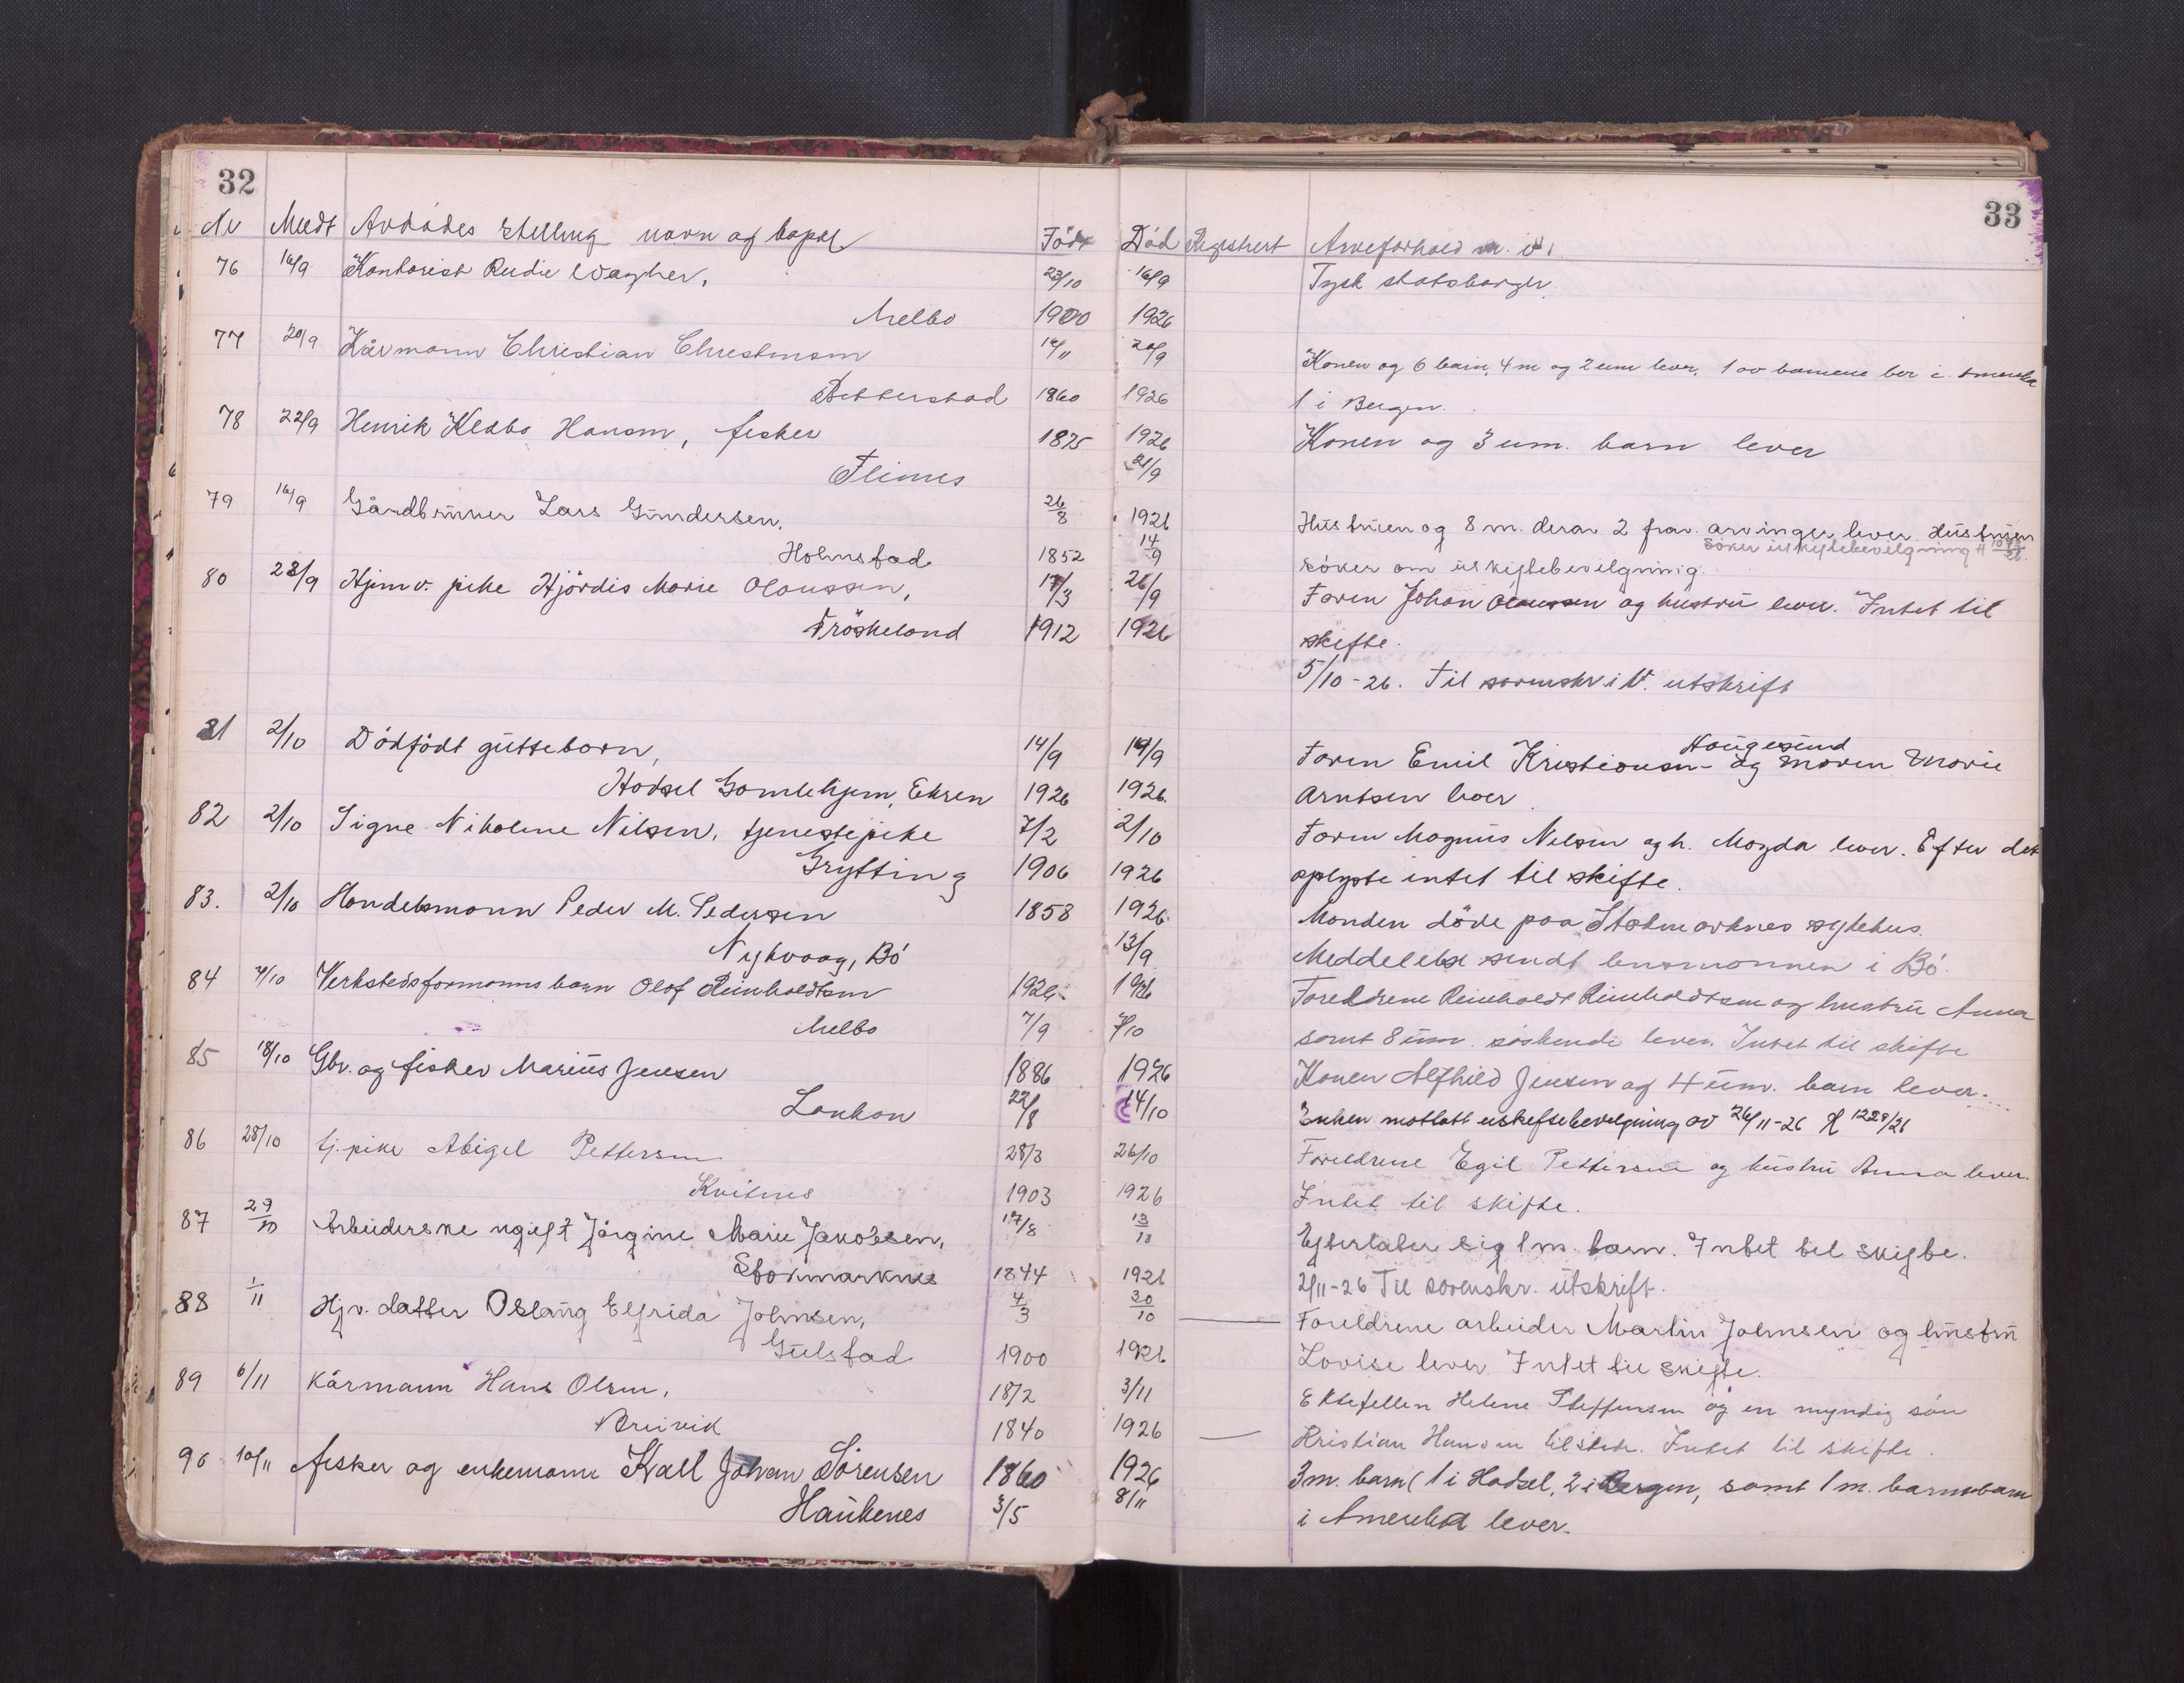 32
33
Nr Medt Avdødes stilling navn og bopæl Født Død Registrert Arveforhold m. v.
76 16/9 Kontorist Rudie Wagner, 23/10 16/9 Tysk statsborger.
Melbo 1900 1926
77 20/9 Kårmann Christian Christensen 16/11 20/9 Konen og 6 barn, 4 m og 2 um lever. 1 av barnene bor i Amerika
1860 1926 1 i Bergen.
78 22/9 Henrik Hansen, fisker 1875 1926 Konen og 3 um. barn lever
Flinnes 21/9
79 16/9 Gårdbruker Lars Gundersen, 26/8 1926 Hustruen og 8 m. derav 2 frav. arvinger lever. Hustruen
søker uskiftebevilgning
Holmstad 1852 14/9 søker om uskiftebevilgning.
80 28/9 Hjemv. pike Hjördis Marie Olaussen, 17/3 26/9 Faren Johan Olaussen og hustru lever. Intet til
Fröskeland 1912 1926 skifte.
5/10-26. Til sorenskr i V. utskrift
81 2/10 Dödfödt guttebarn, 14/9 14/9 Faren Emil Kristiansen - Haugesund og moren Marie
Hadsel Gamlehjem, Ekren 1926 1926. Arntsen lever.
82 2/10 Signe Nikoline Nilsen, tjenestepike 7/2 2/10 Faren Magnus Nilsen og h. Magda lever. Efter det
Grytting 1906 1926 oplyste intet til skifte.
83. 2/10 Handelsmann Peder M. Pedersen 1858 1926. Manden döde paa Stokmarknes sykehus.
Nykvaag, Bö 13/9 Meddelelse sendt lensmannen i Bö.
84 7/10 Verkstedsformanns barn Olaf Reinholdtsen 1926. 1926 Foreldrene Reinholdt Reinholdtsen og hustru Anna
Melbo 7/9 7/10 samt 8 um. söskende lever. Intet til skifte
85 18/10 Gbr. og fisker Marius Jensen 1886 1926 Konen Alfhild Jensen og 4 um. barn lever.
Lonkan 22/8 14/10 Enken mottatt uskiftebevilgning av 26/11-26
86 28/10 tj. pike Abigel Pettersen 28/3 26/10 Foreldrene Egil Pettersen og hustru Anna lever.
Kvitnes 1903 1926 Intet til skifte.
87 29/10 Arbeiderske ugift Jörgine Marie Jakobsen, 17/8 13/10 Efterlater sig 1 m. barn. Intet til skifte.
Stokmarknes 1844 1926 2/11-26 Til sorenskr. utskrift.
88 1/11 Hjv. datter Oslaug Elfrida Johnsen, 4/3 30/10 Foreldrene arbeider Martin Johnsen og hustru
Gulstad 1900 1926 Lovise lever. Intet til skifte.
89 6/11 Kårmann Hans Olsen, 18/2 3/11 Ektefellen Helene Steffensen og en myndig sön
Breivik 1840 1926 Kristian Hansen tilstede. Intet til skifte.
90 10/11 fisker og enkemann Karl Johan Sörensen 1860 1926 3 m. barn (1 i Hadsel, 2 i Bergen, samt 1 m. barnebarn
Haukenes 3/5 8/11 i Amerika lever.